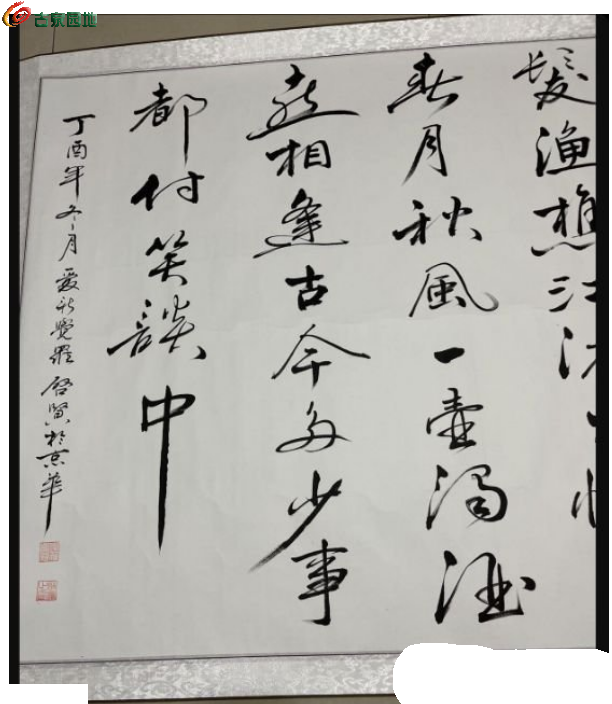 古泉园地
髮漁樵江
春月秋風一壺濁酒
喜相逢古今多少事
都付笑談中
丁酉年冬月愛新覺羅啓賢於京華